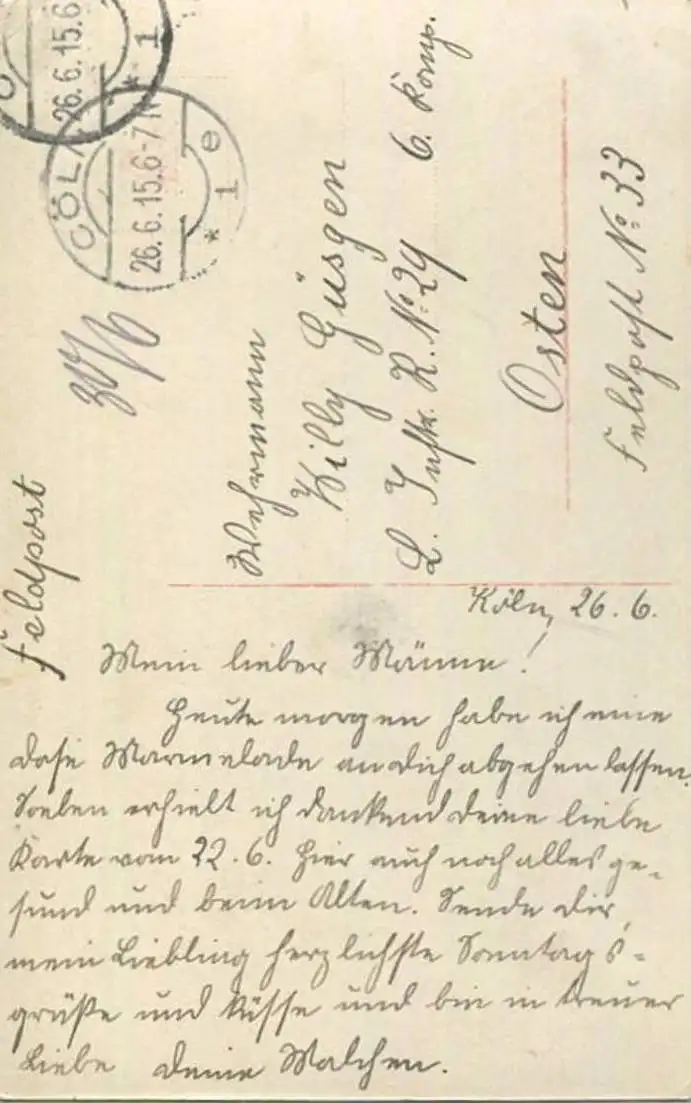 Feldpost
CÖLN
26.6.15.6-7N
* 1 e
26.6.15.6
* 1
30/6
Wehrmann
Willy Güsgen
L. Inftr. R. No. 29 6. Komp.
Osten
Feldpost No. 33
Köln, 26. 6.
Mein lieber Männe!
Heute morgen habe ich eine
Dose Marmelade an Dich abgehen lassen.
Soeben erhielt ich dankend Deine liebe
Karte vom 22.6. Hier auch noch alles ge-
sund und beim Alten. Sende Dir,
mein Liebling herzlichste Sonntags-
grüße und Küsse und bin in treuer
Liebe Deine Malchen.